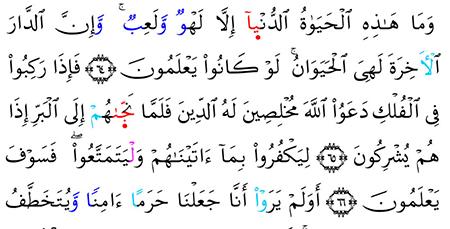 وَمَا هَٰذِهِ ٱلْحَيَوٰةُ ٱلدُّنْيَآ إِلَّا لَهْوٌ وَلَعِبٌ ۚ وَإِنَّ ٱلدَّارَ
ٱلْأَخِرَةَ لَهِىَ ٱلْحَيَوَانُ ۚ لَوْ كَانُوا۟ يَعْلَمُونَ ﴿٦٤﴾ فَإِذَا رَكِبُوا۟
فِى ٱلْفُلْكِ دَعَوُا۟ ٱللَّهَ مُخْلِصِينَ لَهُ ٱلدِّينَ فَلَمَّا نَجَّىٰهُمْ إِلَى ٱلْبَرِّ إِذَا
هُمْ يُشْرِكُونَ ﴿٦٥﴾ لِيَكْفُرُوا۟ بِمَآ ءَاتَيْنَٰهُمْ وَلْيَتَمَتَّعُوا۟ ۖ فَسَوْفَ
يَعْلَمُونَ ﴿٦٦﴾ أَوَلَمْ يَرَوْا۟ أَنَّا جَعَلْنَا حَرَمًا ءَامِنًا وَيُتَخَطَّفُ